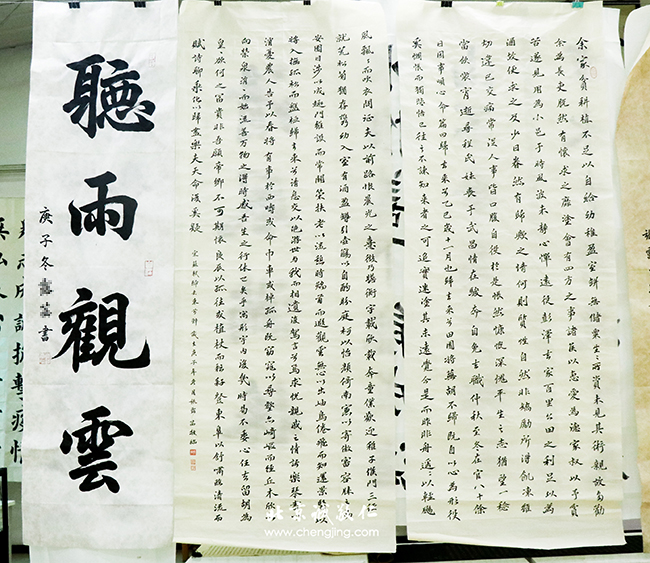 余家貧耕植不足以自給幼稚盈室缾無儲粟生生所資未見其術親故多勸
余為長吏脫然有懷求之靡途會有四方之事諸侯以惠愛為德家叔以予貧
苦遂見用為小邑于時風波未靜心憚遠役彭澤去家百里公田之利足以為
酒故便求之及少日眷然有歸歟之情何則質性自然非矯勵所得飢凍雖
切違己交病嘗從人事皆口腹自役於是悵然慷慨深愧平生之志猶望一稔
當斂裳宵逝尋程氏妹喪于武昌情在駿奔自免去職仲秋至冬在官八十餘
日因事順心命篇曰歸去來兮乙巳歲十一月也歸去來兮田園將蕪胡不歸既自以心為形役
奚惆悵而獨悲悟已往之不諫知來者之可追實迷途其未遠覺今是而昨非舟遙遙以輕颺
風飄飄而吹衣問征夫以前路恨晨光之熹微乃瞻衡宇載欣載奔童僕歡迎稚子候門三徑
就荒松菊猶存攜幼入室有酒盈罇引壺觴以自酌眄庭柯以怡顏倚南窗以寄傲審容膝之易
安園日涉以成趣門雖設而常關策扶老以流憩時矯首而遐觀雲無心以出岫鳥倦飛而知還景翳翳以
將入撫孤松而盤桓歸去來兮請息交以絕游世與我而相遺復駕言兮焉求悅親戚之情話樂琴書以
消憂農人告予以春將有事於西疇或命巾車或棹孤舟既窈窕以尋壑亦崎嶇而經丘木欣欣以
向榮泉涓涓而始流善萬物之得時感吾生之行休已矣乎寓形宇內復幾時曷不委心任去留胡為
皇皇欲何之富貴非吾願帝鄉不可期懷良辰以孤往或植杖而耘耔登東皋以舒嘯臨清流而
賦詩聊乘化以歸盡樂夫天命復奚疑
聽雨觀雲
庚子冬
書
北京誠敬仁
www.chengjing.com